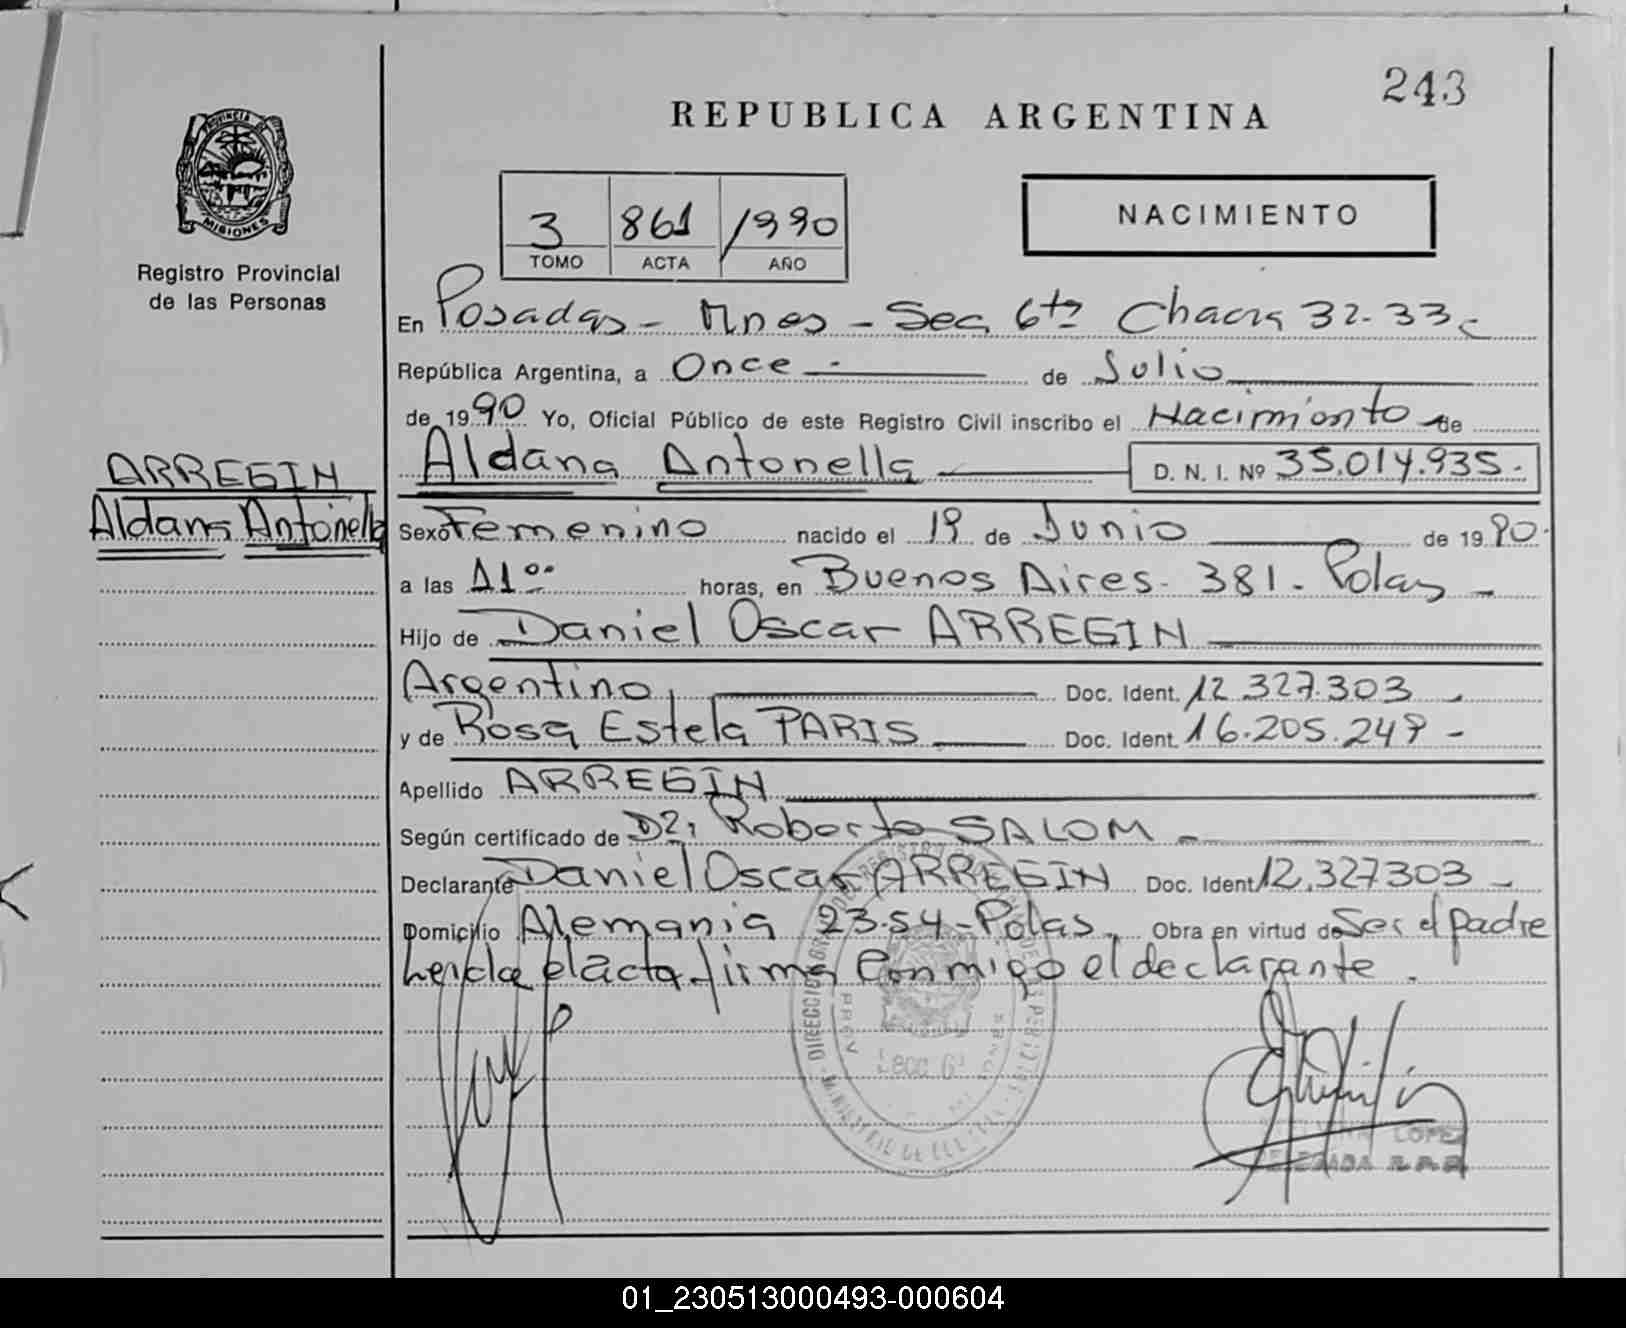 243
REPUBLICA ARGENTINA
PROVINCIA DE
MISIONES
Registro Provincial
de las Personas
3 861 1990
TOMO ACTA AÑO
NACIMIENTO
En Posadas - Mnes - Sec 6ta Chacra 32-33
República Argentina, a Once de Julio
de 1990 Yo, Oficial Público de este Registro Civil inscribo el Nacimiento de
Aldana Antonella D. N. I. Nº 35.014.935.
ARREGIN
Aldana Antonella
Sexo Femenino nacido el 19 de Junio de 1990
a las 11°° horas, en Buenos Aires - 381 - Pdas -
Hijo de Daniel Oscar ARREGIN
Argentino, Doc. Ident. 12.327.303
y de Rosa Estela PARIS Doc. Ident. 16.205.249 -
Apellido ARREGIN
Según certificado de Dr. Roberto SALOM -
Declarante Daniel Oscar ARREGIN Doc. Ident 12.327303 -
Domicilio Alemania 2354 - Pdas. Obra en virtud de Ser el padre
Leida el acta firma Conmigo el declarante.
LOPEZ
DELEGADA R.P.P.
01_230513000493-000604